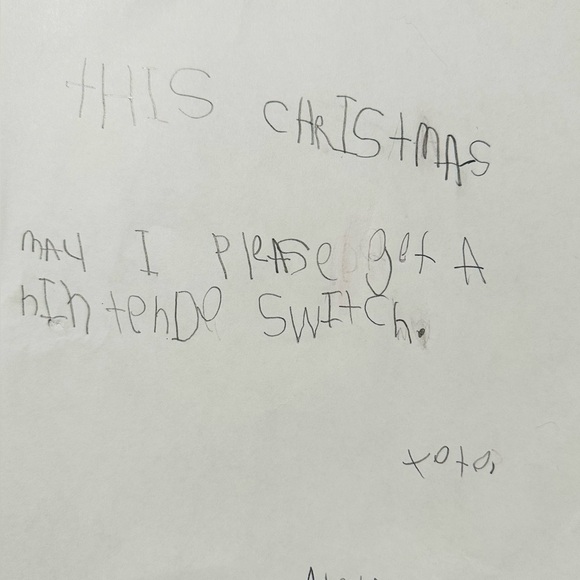 tHIS CHRIStmAS
mAy I PleASe get A
nIntenDo SwItCh.
xoxo,